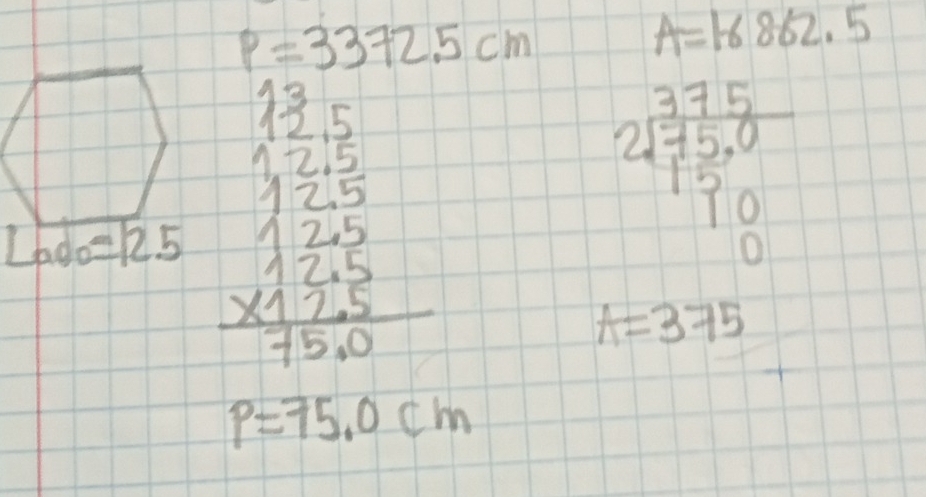 P=3372.5 cm
A=16862.5
Lado=12.5
13
12.5
12.5
12.5
12.5
12.5
x12.5
75.0
P=75.0 cm
375
2√75.0
15
10
0
A=375